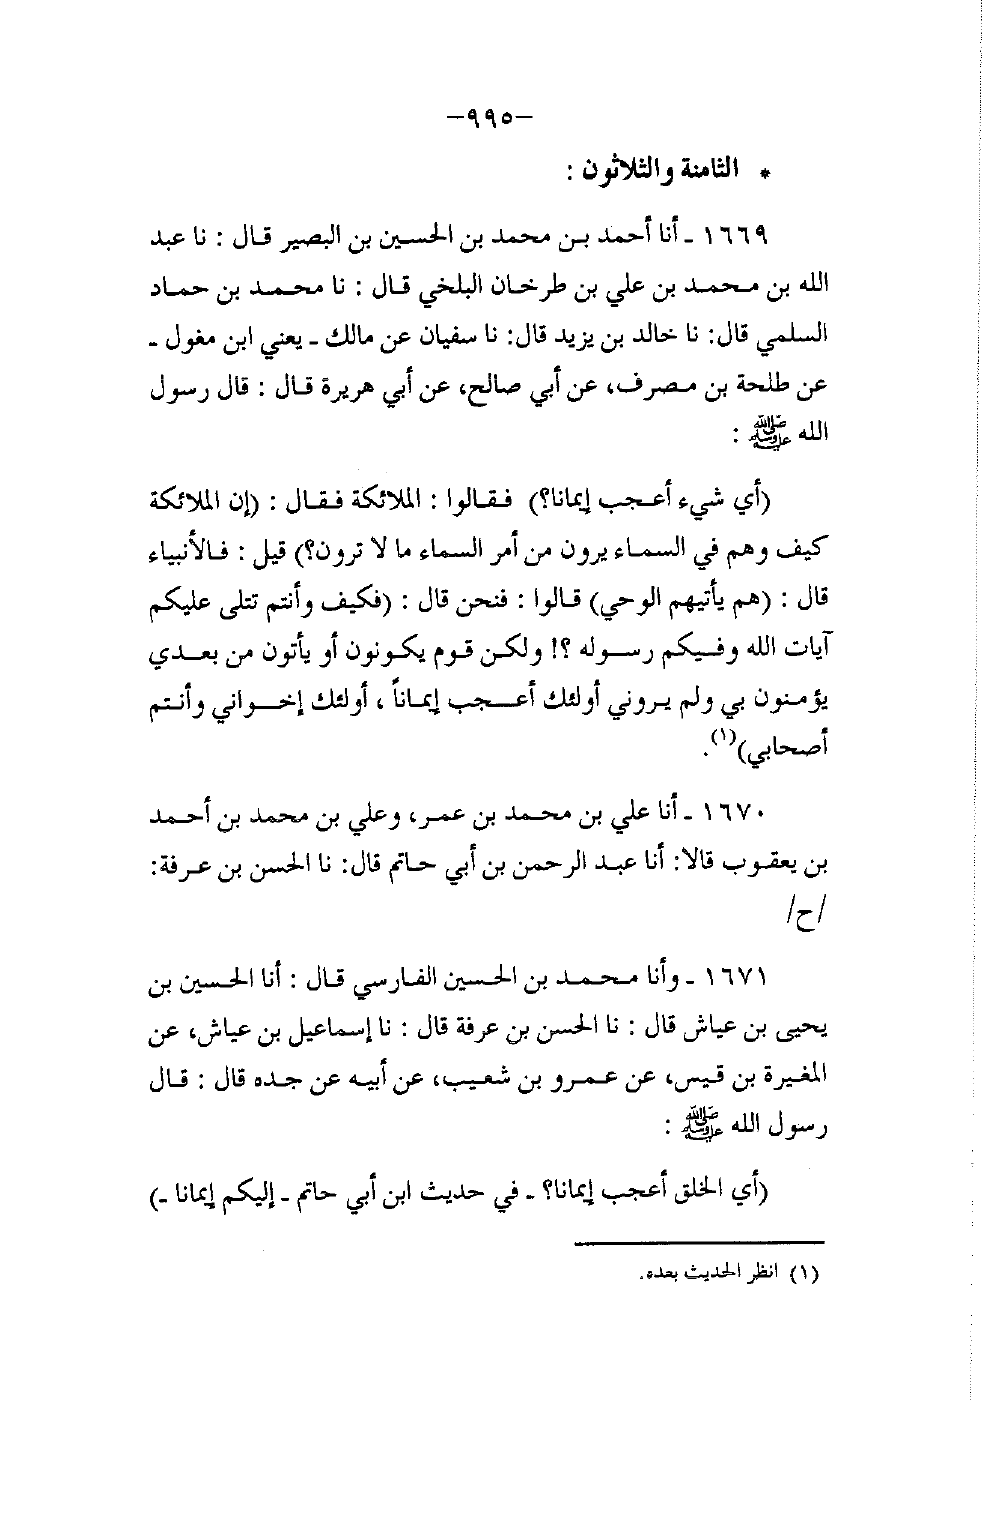 -٩٩٥-
* الثامنة والثلاثون :
١٦٦٩ - أنا أحمد بن محمد بن الحسين بن البصير قال : نا عبد
الله بن محمد بن علي بن طرخان البلخي قال : نا محمد بن حماد
السلمي قال: نا خالد بن يزيد قال: نا سفيان عن مالك - يعني ابن مغول -
عن طلحة بن مصرف، عن أبي صالح، عن أبي هريرة قال : قال رسول
الله ﷺ :
(أي شيء أعجب إيمانا؟) فقالوا : الملائكة فقال : (إن الملائكة
كيف وهم في السماء يرون من أمر السماء ما لا ترون؟) قيل : فالأنبياء
قال : (هم يأتيهم الوحي) قالوا : فنحن قال : (فكيف وأنتم تتلى عليكم
آيات الله وفيكم رسوله ؟! ولكن قوم يكونون أو يأتون من بعدي
يؤمنون بي ولم يروني أولئك أعجب إيماناً ، أولئك إخواني وأنتم
أصحابي)(١).
١٦٧٠ - أنا علي بن محمد بن عمر، وعلي بن محمد بن أحمد
بن يعقوب قالا: أنا عبد الرحمن بن أبي حاتم قال: نا الحسن بن عرفة:
/ح/
١٦٧١ - وأنا محمد بن الحسين الفارسي قال : أنا الحسين بن
يحيى بن عياش قال : نا الحسن بن عرفة قال : نا إسماعيل بن عياش، عن
المغيرة بن قيس، عن عمرو بن شعيب، عن أبيه عن جده قال : قال
رسول الله ﷺ :
(أي الخلق أعجب إيمانا؟ - في حديث ابن أبي حاتم - إليكم إيمانا -)
(١) انظر الحديث بعده.